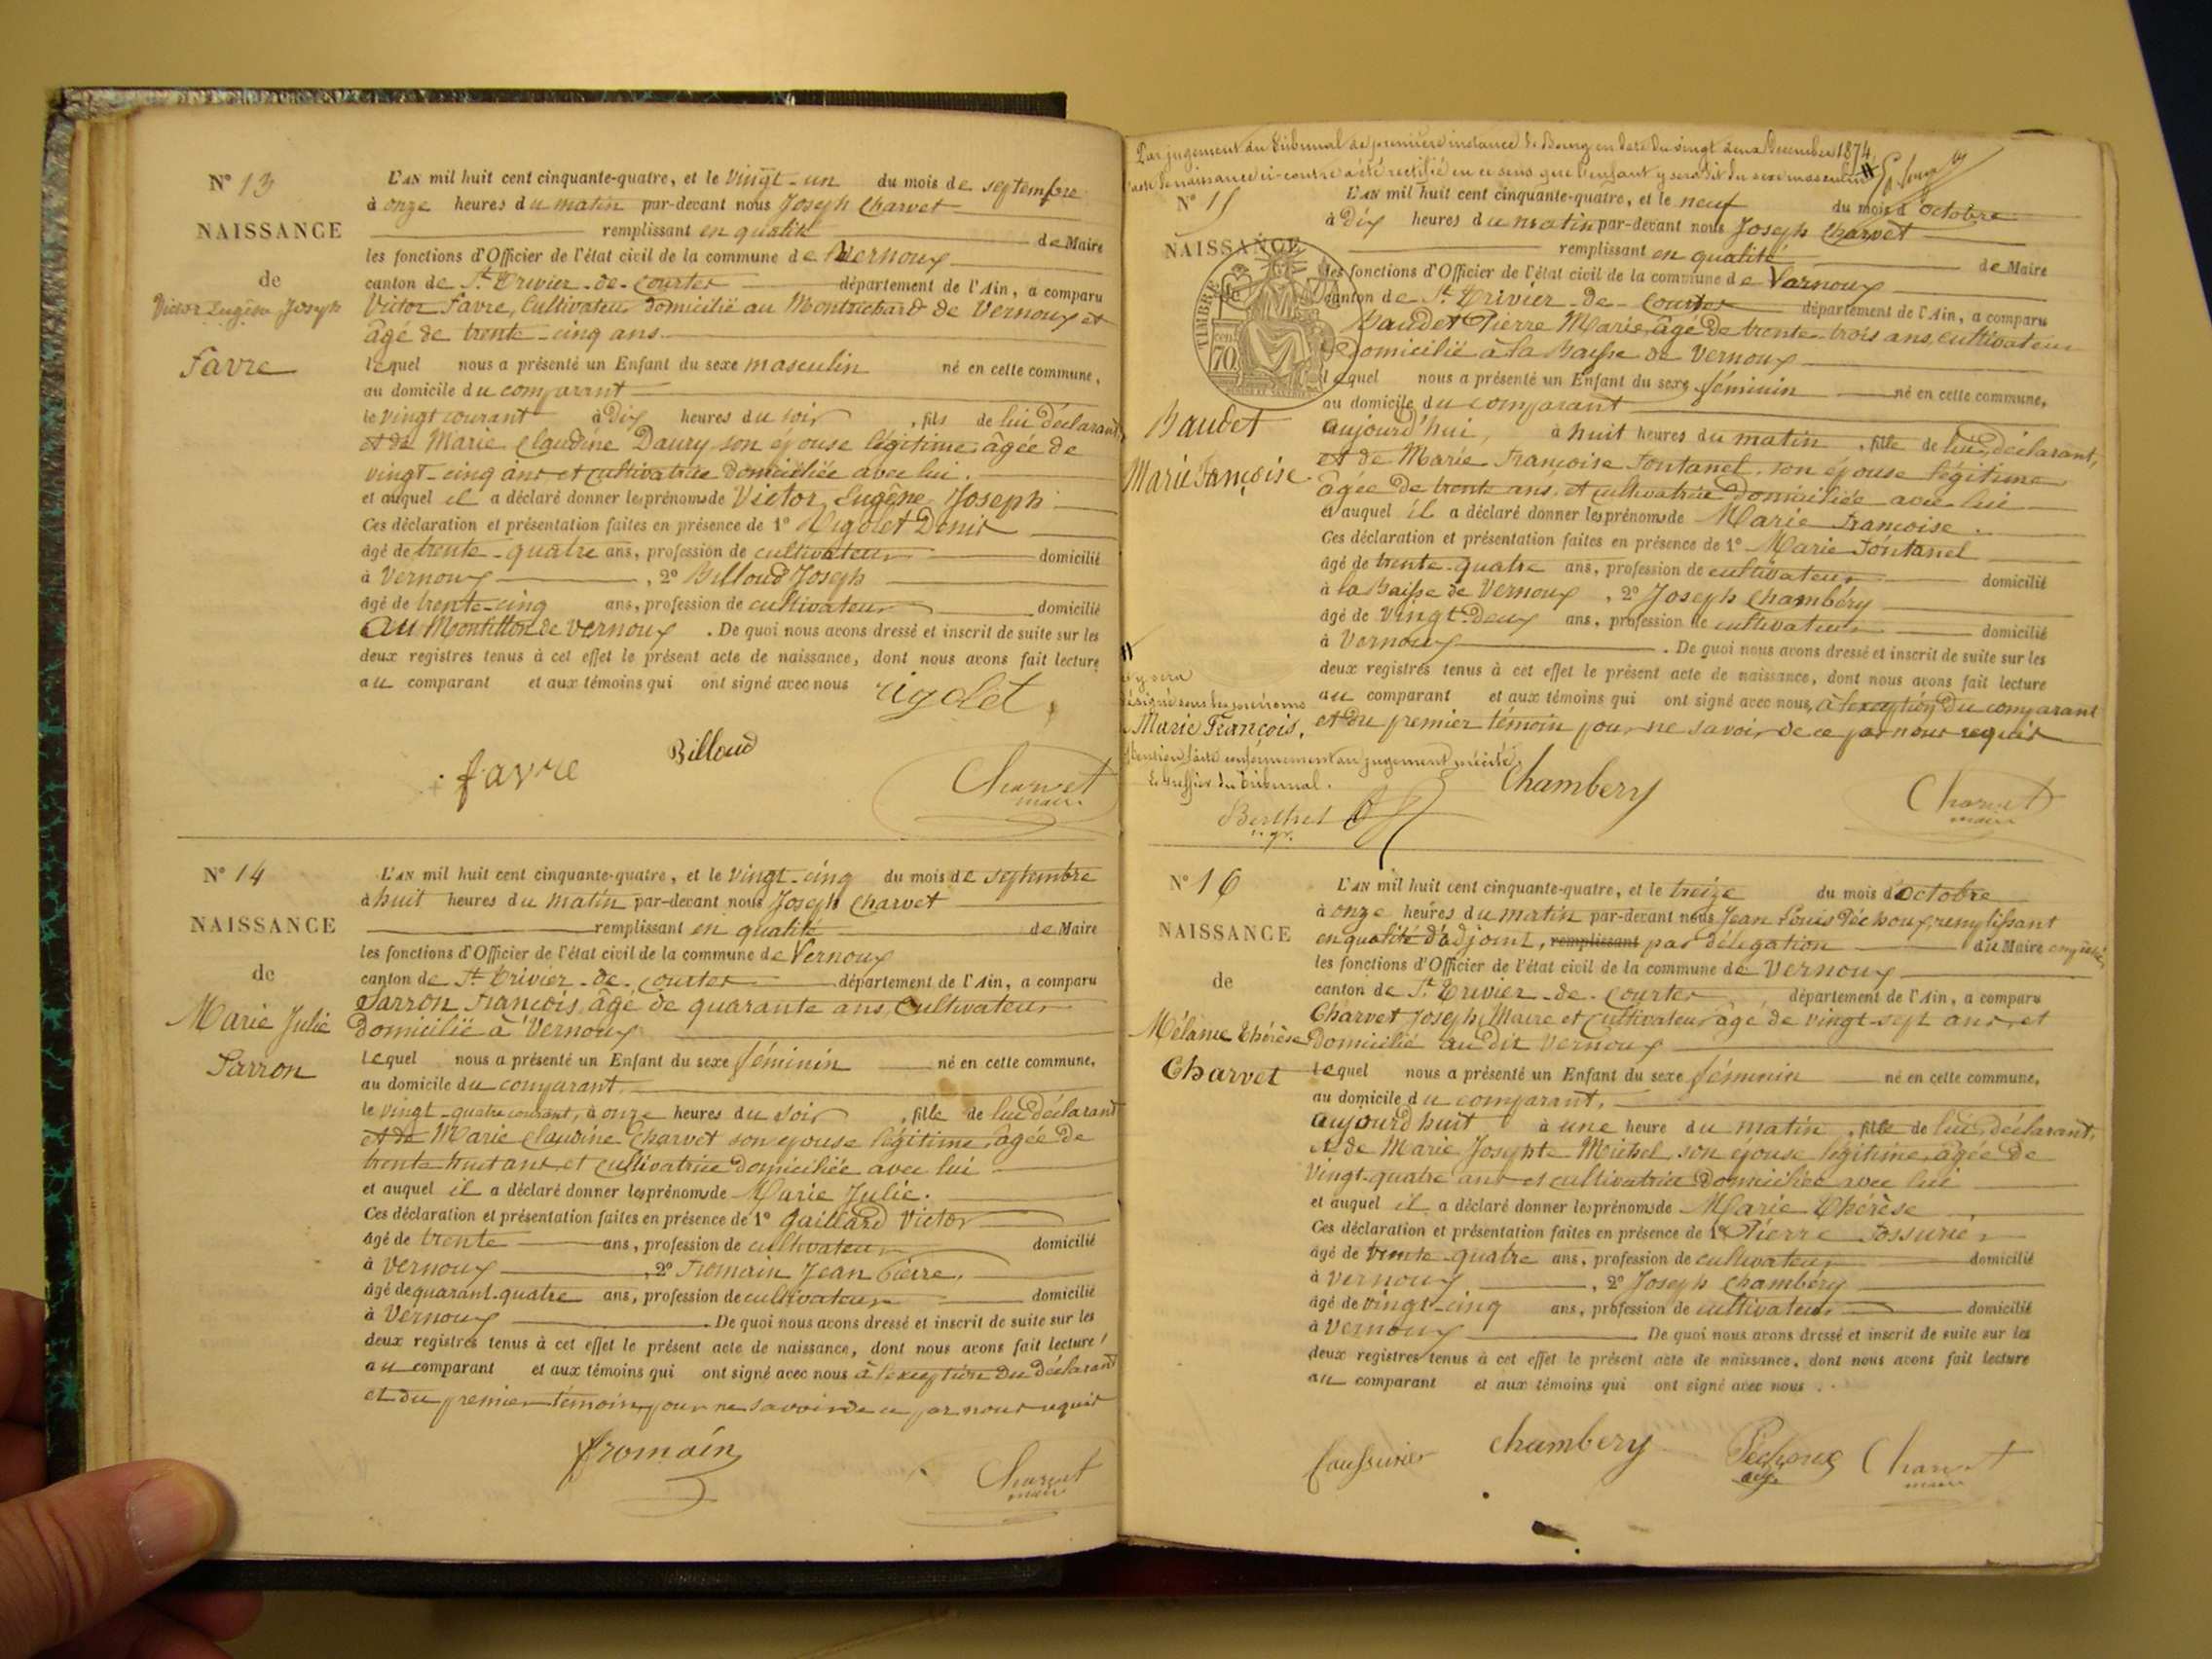 Nº 13
NAISSANCE
de
Victor Eugène Joseph
Favre
L'AN mil huit cent cinquante-quatre, et le vingt-un du mois de septembre
à onze heures du matin par-devant nous Joseph Charvet
remplissant en qualité de Maire
les fonctions d'Officier de l'état civil de la commune de Vernoux
canton de St Trivier-de-Courtes département de l'Ain, a comparu
Victor Favre, Cultivateur domicilié au Montrichard de Vernoux et
âgé de trente-cinq ans
lequel nous a présenté un Enfant du sexe masculin né en cette commune,
au domicile du comparant
le vingt courant à Dix heures du soir, fils de lui déclarant
et de Marie Claudine Daury son épouse légitime âgée de
vingt-cinq ans et cultivatrice domiciliée avec lui.
et auquel il a déclaré donner les prénoms de Victor, Eugène Joseph
Ces déclaration et présentation faites en présence de 1º Rigolet Denis
âgé de trente-quatre ans, profession de cultivateur domicilié
à Vernoux, 2º Billoud Joseph
âgé de trente-cinq ans, profession de cultivateur domicilié
au de Vernoux. De quoi nous avons dressé et inscrit de suite sur les
deux registres tenus à cet effet le présent acte de naissance, dont nous avons fait lecture
au comparant et aux témoins qui ont signé avec nous rigolet
Billoud
favre
Charvet
maire
Nº 14
NAISSANCE
de
Marie Julie
Sarron
L'AN mil huit cent cinquante-quatre, et le vingt-cinq du mois de septembre
à huit heures du matin par-devant nous Joseph Charvet
remplissant en qualité de Maire
les fonctions d'Officier de l'état civil de la commune de Vernoux
canton de St Trivier-de-Courtes département de l'Ain, a comparu
Sarron François, âgé de quarante ans, Cultivateur
domicilié à Vernoux
lequel nous a présenté un Enfant du sexe féminin né en cette commune,
au domicile du comparant
le vingt-quatre courant, à onze heures du soir, fille de lui déclarant
et de Marie Claudine Charvet son épouse légitime, âgée de
trente-huit ans et cultivatrice domiciliée avec lui
et auquel il a déclaré donner les prénoms de Marie Julie.
Ces déclaration et présentation faites en présence de 1º Gaillard Victor
âgé de trente ans, profession de cultivateur domicilié
à Vernoux, 2º Fromain Jean Pierre,
âgé de quarant-quatre ans, profession de cultivateur domicilié
à Vernoux. De quoi nous avons dressé et inscrit de suite sur les
deux registres tenus à cet effet le présent acte de naissance, dont nous avons fait lecture
au comparant et aux témoins qui ont signé avec nous à l'exception du déclarant
et du premier témoin pour ne savoir de ce par nous requis
fromain
Charvet
maire
Par jugement du tribunal de première instance de Bourg en date du vingt deux Décembre 1874,
l'acte de naissance ci-contre a été rectifié en ce sens que l'enfant y sera dit du sexe masculin
Nº 15
NAISSANCE
TIMBRE
70
Baudet
Marie Françoise
L'AN mil huit cent cinquante-quatre, et le neuf du mois d'octobre
à Dix heures du matin par-devant nous Joseph Charvet
remplissant en qualité de Maire
les fonctions d'Officier de l'état civil de la commune de Vernoux
canton de St Trivier-de-Courtes département de l'Ain, a comparu
Baudet Pierre Marie, âgé de trente-trois ans, cultivateur
domicilié à la Baisse de Vernoux
lequel nous a présenté un Enfant du sexe féminin né en cette commune,
au domicile du comparant
aujourd'hui, à huit heures du matin, fille de lui, déclarant,
et de Marie Françoise Fontanel, son épouse légitime
âgée de trente ans, et cultivatrice domiciliée avec lui
et auquel il a déclaré donner les prénoms de Marie Françoise.
Ces déclaration et présentation faites en présence de 1º Marie Fontanel
âgé de trente-quatre ans, profession de cultivateur domicilié
à la Baisse de Vernoux, 2º Joseph Chambéry
âgé de vingt-deux ans, profession de cultivateur domicilié
à Vernoux. De quoi nous avons dressé et inscrit de suite sur les
deux registres tenus à cet effet le présent acte de naissance, dont nous avons fait lecture
au comparant et aux témoins qui ont signé avec nous, à l'exception du comparant
et du premier témoin pour ne savoir de ce par nous requis
et y sera
désigné sous les prénoms
Marie François.
Mention faite conformément au jugement précité,
Le Greffier du Tribunal.
Berthet
Chambery
Charvet
maire
Nº 16
NAISSANCE
de
Mélanie Thérèse
Charvet
L'AN mil huit cent cinquante-quatre, et le treize du mois d'octobre
à onze heures du matin par-devant nous Jean Louis Péchoux, remplissant
en qualité d'adjoint, remplissant par délégation du Maire empêché,
les fonctions d'Officier de l'état civil de la commune de Vernoux
canton de St Trivier-de-Courtes département de l'Ain, a comparu
Charvet Joseph, Maire et Cultivateur, âgé de vingt-sept ans, et
domicilié au dit Vernoux
lequel nous a présenté un Enfant du sexe féminin né en cette commune,
au domicile du comparant,
aujourd'huit à une heure du matin, fille de lui, déclarant,
et de Marie Josephte Michel, son épouse légitime, âgée de
vingt-quatre ans et cultivatrice domiciliée avec lui
et auquel il a déclaré donner les prénoms de Marie Thérèse
Ces déclaration et présentation faites en présence de 1º Pierre Fossurier
âgé de trente-quatre ans, profession de cultivateur domicilié
à Vernoux, 2º Joseph Chambéry
âgé de vingt-cinq ans, profession de cultivateur domicilié
à Vernoux De quoi nous avons dressé et inscrit de suite sur les
deux registres tenus à cet effet le présent acte de naissance, dont nous avons fait lecture
au comparant et aux témoins qui ont signé avec nous.
faussurier
chambery
Péchoux
adj.
Charvet
maire